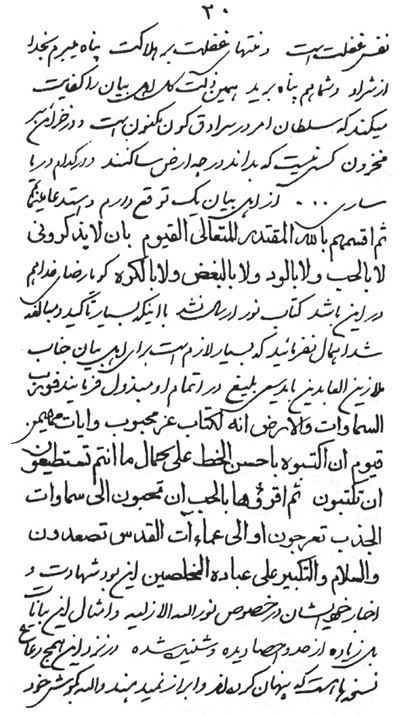 ٢٠
نفس غفلت است و منتهای غفلت بر هلاکت پناه میبرم بخدا
از شر او و شما هم پناه برید همین ذلت کل اهل بیان را کفایت
میکند که سلطان امر در سرادق کون مکنون است و در خزائن سر
مخزون کسی نیست که بداند در چه ارض ساکنند و در کدام دریا
ساری ... از اهل بیان یک توقع دارم و استدعا
ثم اقسمهم بالله المقتدر المتعالی القیوم بان لایذکرونی
لا بالحب و لا بالود و لا بالبغض و لا بالکره کو بارضای خدا هم
در این باشد کتاب نور ارسال نشد با اینکه بسیار تأکید و مبالغه
شد اهمال نفرمائید که بسیار لازم است برای اهل بیان جناب
ملا زین العابدین باید سعی بلیغ در اتمام او مبذول فرمایند فورب
السماوات و الارض انه لکتاب عز محبوب و ایات مهیمن
قیوم ان اکتبوه باحسن الخط علی کمال ما انتم تستطیعون
ان تکتبون ثم اقرؤها بالحب ان تحبون الی سماوات
الجذب تعرجون او الی عماءات القدس تصعدون
والسلام والتکبیر علی عباده المخلصین این بود شهادت و
اخبار خطی ایشان در خصوص نور الله الازلیه و امثال این بیانات
بل زیاده از حد و احصا دیده و شنیده شده و در نزد این همج رعاع
نسخه ها است که پنهان کردن لغو و ابراز نمیدهند والله بگوش خود